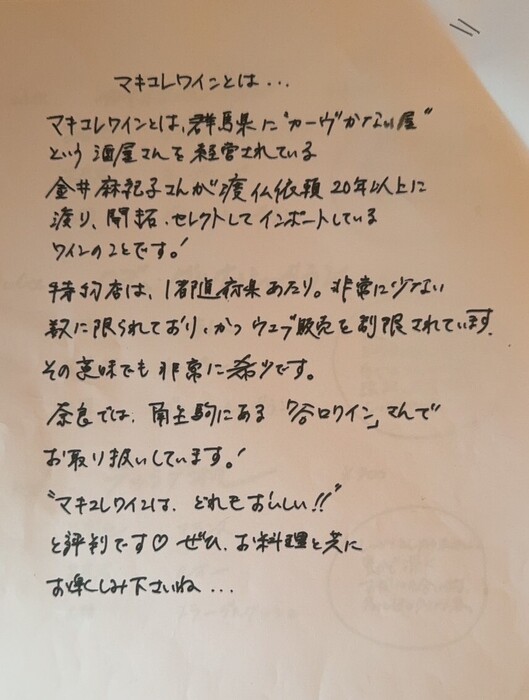 マキコレワインとは...
マキコレワインとは、群馬県に“カーヴかない屋”
という酒屋さんを経営されている
金井麻紀子さんが渡仏依頼20年以上に
渡り、開拓・セレクトしてインポートしている
ワインのことです!
特約店は、1都道府県あたり。非常に少ない
数に限られており、かつウェブ販売を制限されています。
その意味でも非常に希少です。
奈良では、南生駒にある「谷口ワイン」さんで
お取り扱いしています!
“マキコレワインは、どれもおいしい!!”
と評判です♡ ぜひ、お料理と共に
お楽しみ下さいね...